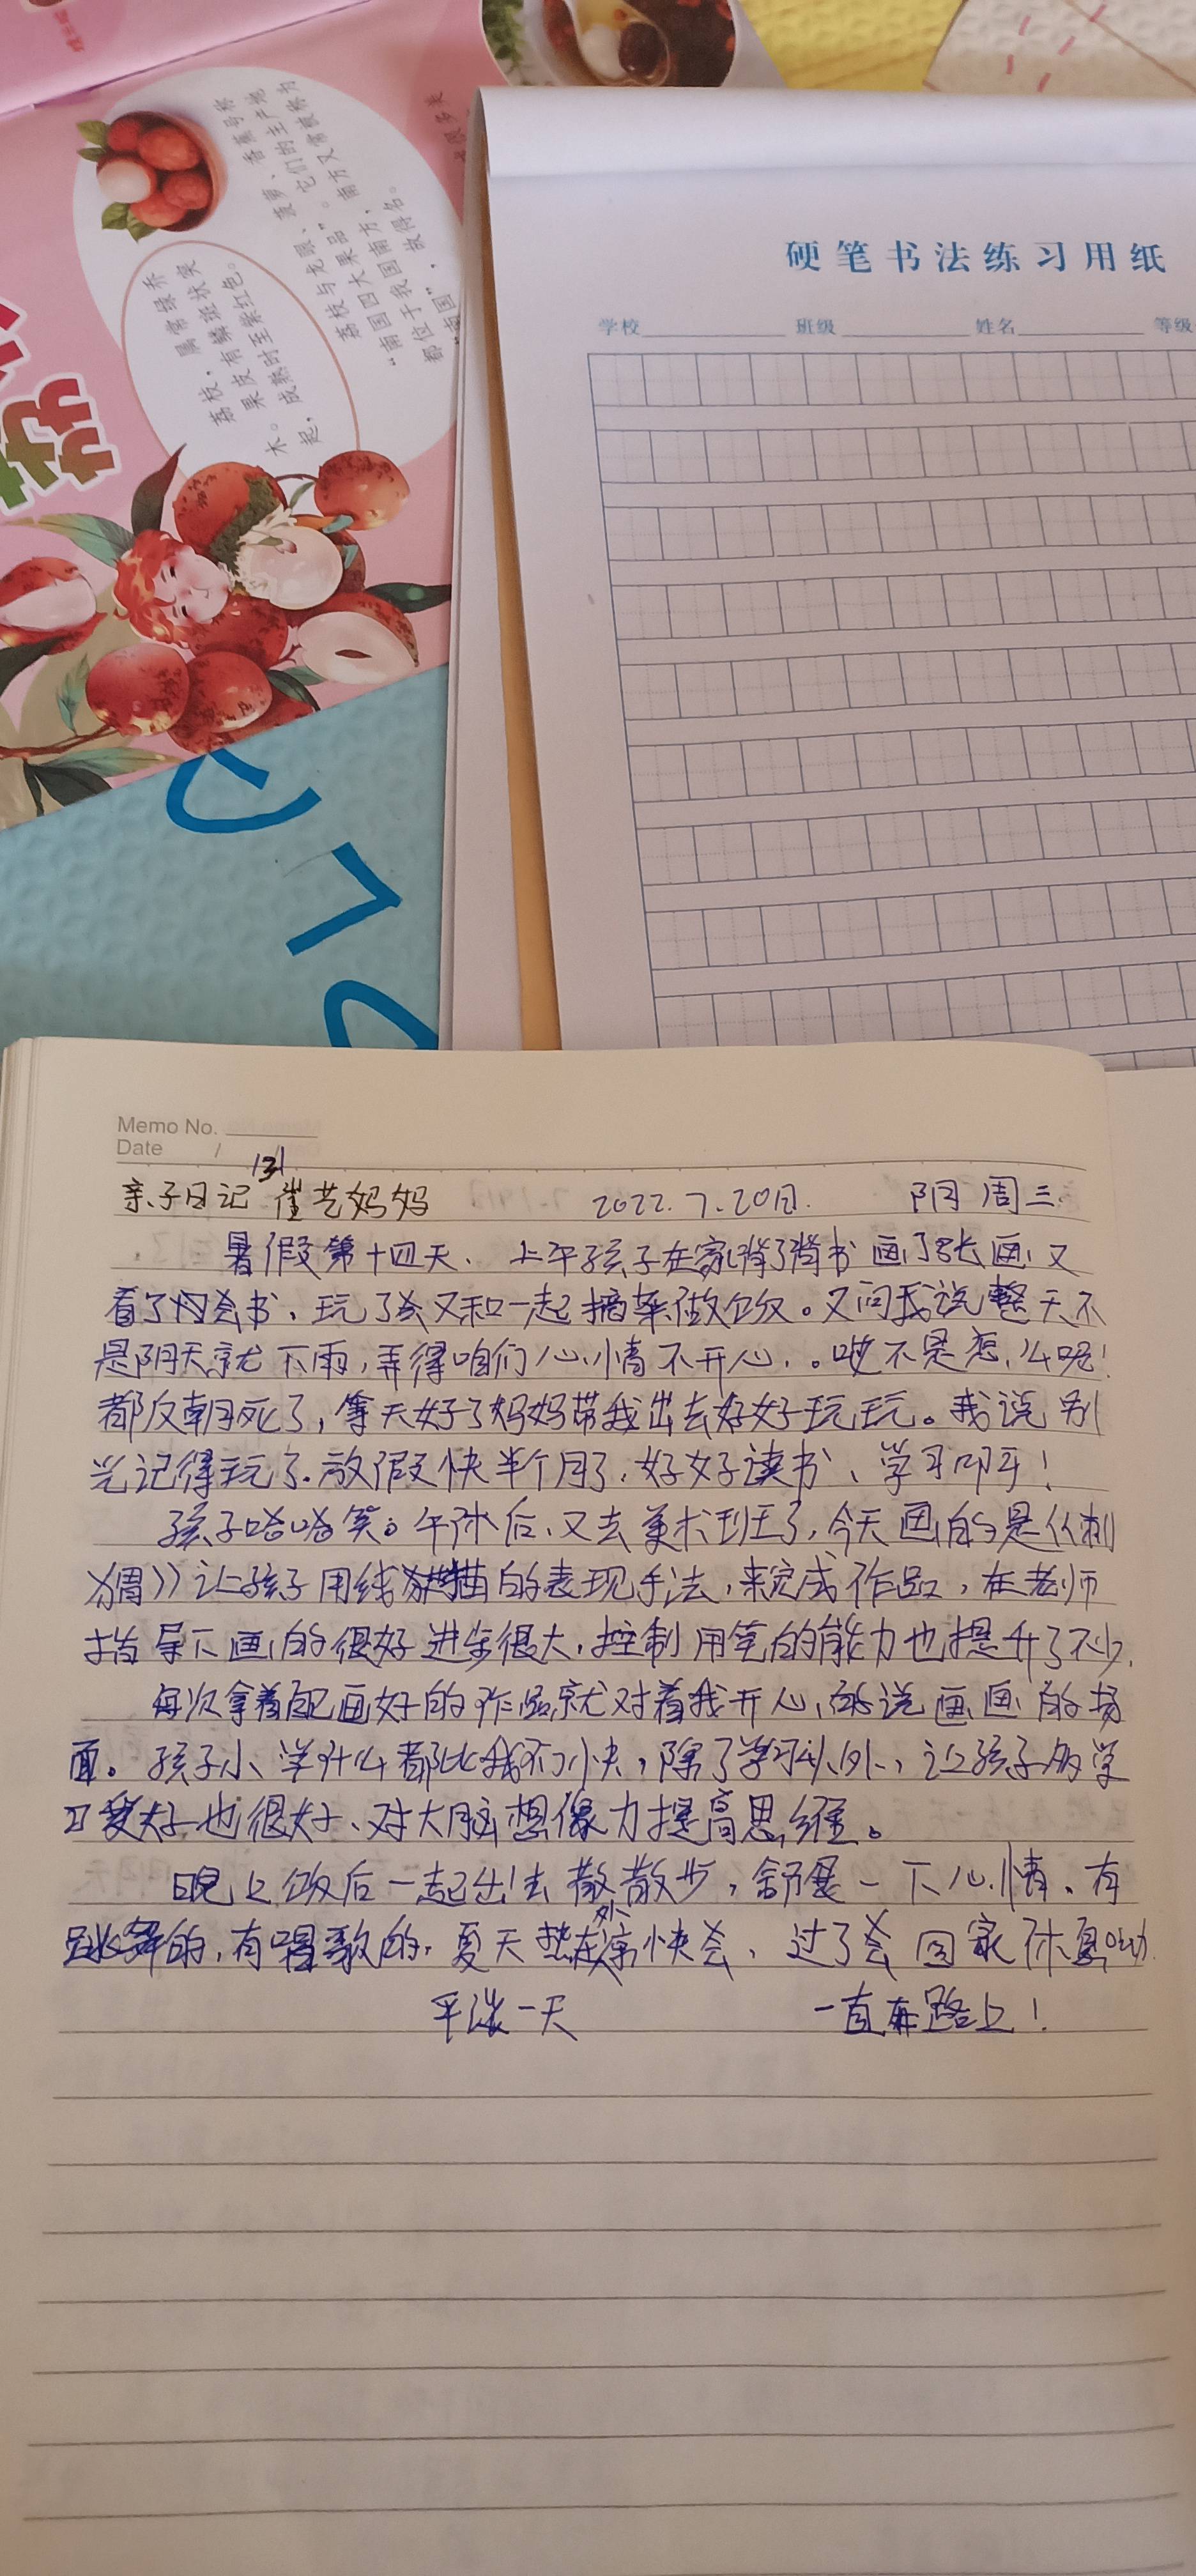 硬笔书法练习用纸
学校 班级 姓名 等级
Memo No.
Date /
131
亲子日记 崔艺妈妈 2022.7.20日. 阴 周三
暑假第十四天、上午孩子在家背了背书 画了张画,又
看了会书、玩了会又和一起摘菜做饭。又问我说整天不
是阴天就下雨,弄得咱们心情不开心,。哎不是怎么呢!
都反朝死了,等天好了妈妈带我出去好好玩玩。我说别
光记得玩了.放假快半个月了,好好读书、学习叩牙!
孩子哈哈笑。午休后、又去美术班了,今天画的是《刺
猬》》让孩子用线描的表现手法,来完成作品,在老师
指导下画的很好进步很大,控制用笔的能力也提升了不少.
每次拿着自己画好的作品就对着我开心的说画画的场
面。孩子小、学什么都比我们快,除了学习以外,让孩子多学
习爱好也很好、对大脑想像力提高思维。
晚上饭后一起出去散散步,舒展一下心情、有
跳舞的,有唱歌的,夏天热在外凉快会、过了会回家休息
平淡一天 一直在路上!